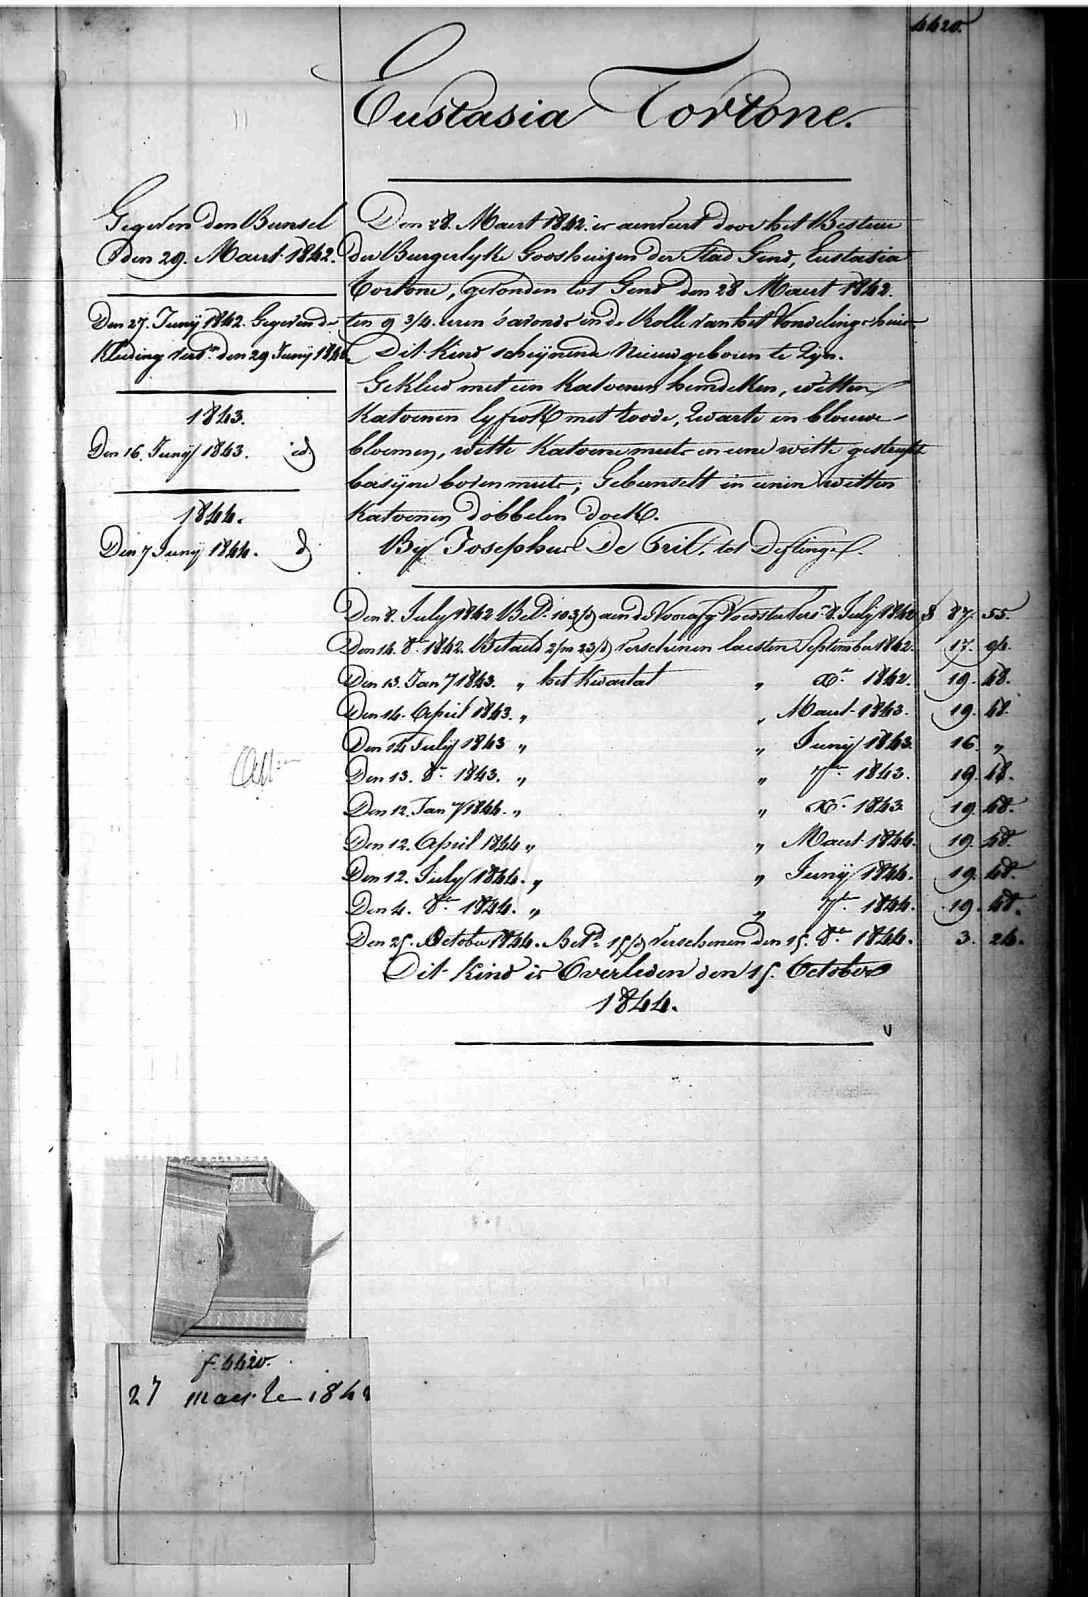 4420.
Eustasia Tortone.
Gegeven den Bunsel
den 29. Maert 1842.
Den 27. Junij 1842. Gegeven de
Kleeding den 29 Junij 1842
1843.
Den 16. Junij 1843. id
1844.
Den 7 Junij 1844. d
Den 28. Maert 1842. is aenveert door het Bestuur
der Burgerlyke Godshuizen der Stad Gend, Eustasia
Tortone, gevonden tot Gend den 28 Maert 1842.
ten 9 3/4 uren 's avonds in de Rolle van het Vondelingshuis
Dit kind scheijnende Nieuwgeboren te Zyn.
Gekleed met een Katoenen hemdeken, witten
Katoenen lyfrok met roode, Zwarte en blouwe
bloemen, witte Katoene muts en eene witte gestreepte
basijne boven muts; Gebunselt in eenen witten
Katoenen dobbelen doek.
By Josephus De Pril, tot
Den 8. July 1842 Bet.d 103/d aen de Voedsters 8. July 1842 f 87. 55.
Den 14. 8.r 1842. Betaeld 2/m 23/d verschenen laesten September 1842. 17. 94.
Den 13. Jan.y 1843. „ het Kwartael „ X.r 1842. 19. 48.
Den 14. April 1843. „ „ Maert 1843. 19. 48.
Den 14 July 1843 „ „ Junij 1843. 16 „
Den 13. 8.r 1843. „ „ 7.r 1843. 19. 48.
Den 12. Jan.y 1844. „ „ X.r 1843 19. 48.
Den 12. April 1844 „ „ Maert 1844. 19. 48.
Den 12. July 1844. „ „ Junij 1844. 19. 48.
Den 4. 8.r 1844. „ „ 7.r 1844. 19. 48.
Den 25. October 1844. Bet.d 15/d verschenen den 15. 8.r 1844. 3. 24.
Dit kind is Overleden den 15. October
1844.
f. 4420.
27 maerte 1842